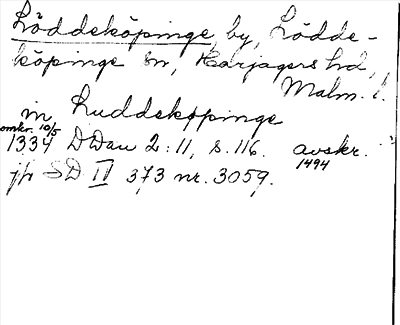 Löddeköpinge by, Lödde-
köpinge sn, Harjagers hd,
Malm. l.
in Luddekøpinge
omkr. 10/5
1334 DDan 2:11, s. 116. avskr.
1494
jfr SD IV 373 nr. 3059.